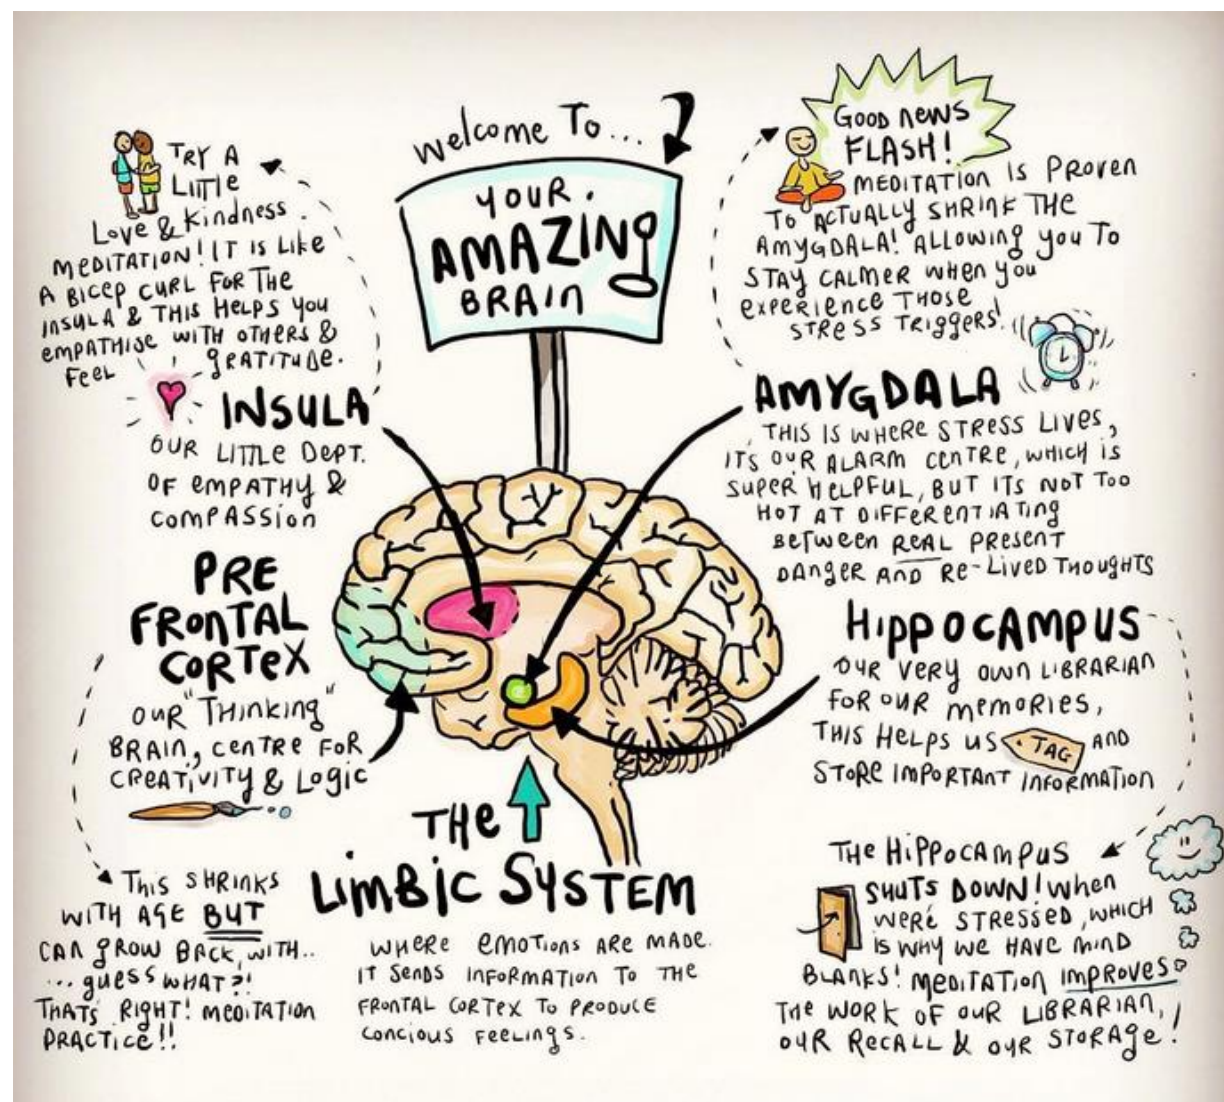 Welcome To...
YOUR
AMAZING
BRAIN
TRY A
LITTLE
Love & Kindness
MEDITATION! IT IS LIKE
A BICEP CURL FOR THE
INSULA & THIS HELPS YOU
EMPATHISE WITH OTHERS &
FEEL GRATITUDE.
INSULA
OUR LITTLE DEPT.
OF EMPATHY &
COMPASSION
PRE
FRONTAL
CORTEX
OUR "THINKING"
BRAIN, CENTRE FOR
CREATIVITY & LOGIC
THIS SHRINKS
WITH AGE BUT
CAN GROW BACK, WITH..
... GUESS WHAT?!
THATS RIGHT! MEDITATION
PRACTICE!!
THE
LIMBIC SYSTEM
WHERE EMOTIONS ARE MADE.
IT SENDS INFORMATION TO THE
FRONTAL CORTEX TO PRODUCE
CONCIOUS FEELINGS.
GOOD NEWS
FLASH!
MEDITATION IS PROVEN
TO ACTUALLY SHRINK THE
AMYGDALA! ALLOWING YOU TO
STAY CALMER WHEN YOU
EXPERIENCE THOSE
STRESS TRIGGERS!
AMYGDALA
THIS IS WHERE STRESS LIVES,
ITS OUR ALARM CENTRE, WHICH IS
SUPER HELPFUL, BUT ITS NOT TOO
HOT AT DIFFERENTIATING
BETWEEN REAL PRESENT
DANGER AND RE-LIVED THOUGHTS
HIPPOCAMPUS
OUR VERY OWN LIBRARIAN
FOR OUR MEMORIES,
THIS HELPS US TAG AND
STORE IMPORTANT INFORMATION
THE HIPPOCAMPUS
SHUTS DOWN! WHEN
WERE STRESSED, WHICH
IS WHY WE HAVE MIND
BLANKS! MEDITATION IMPROVES
THE WORK OF OUR LIBRARIAN,
OUR RECALL & OUR STORAGE!